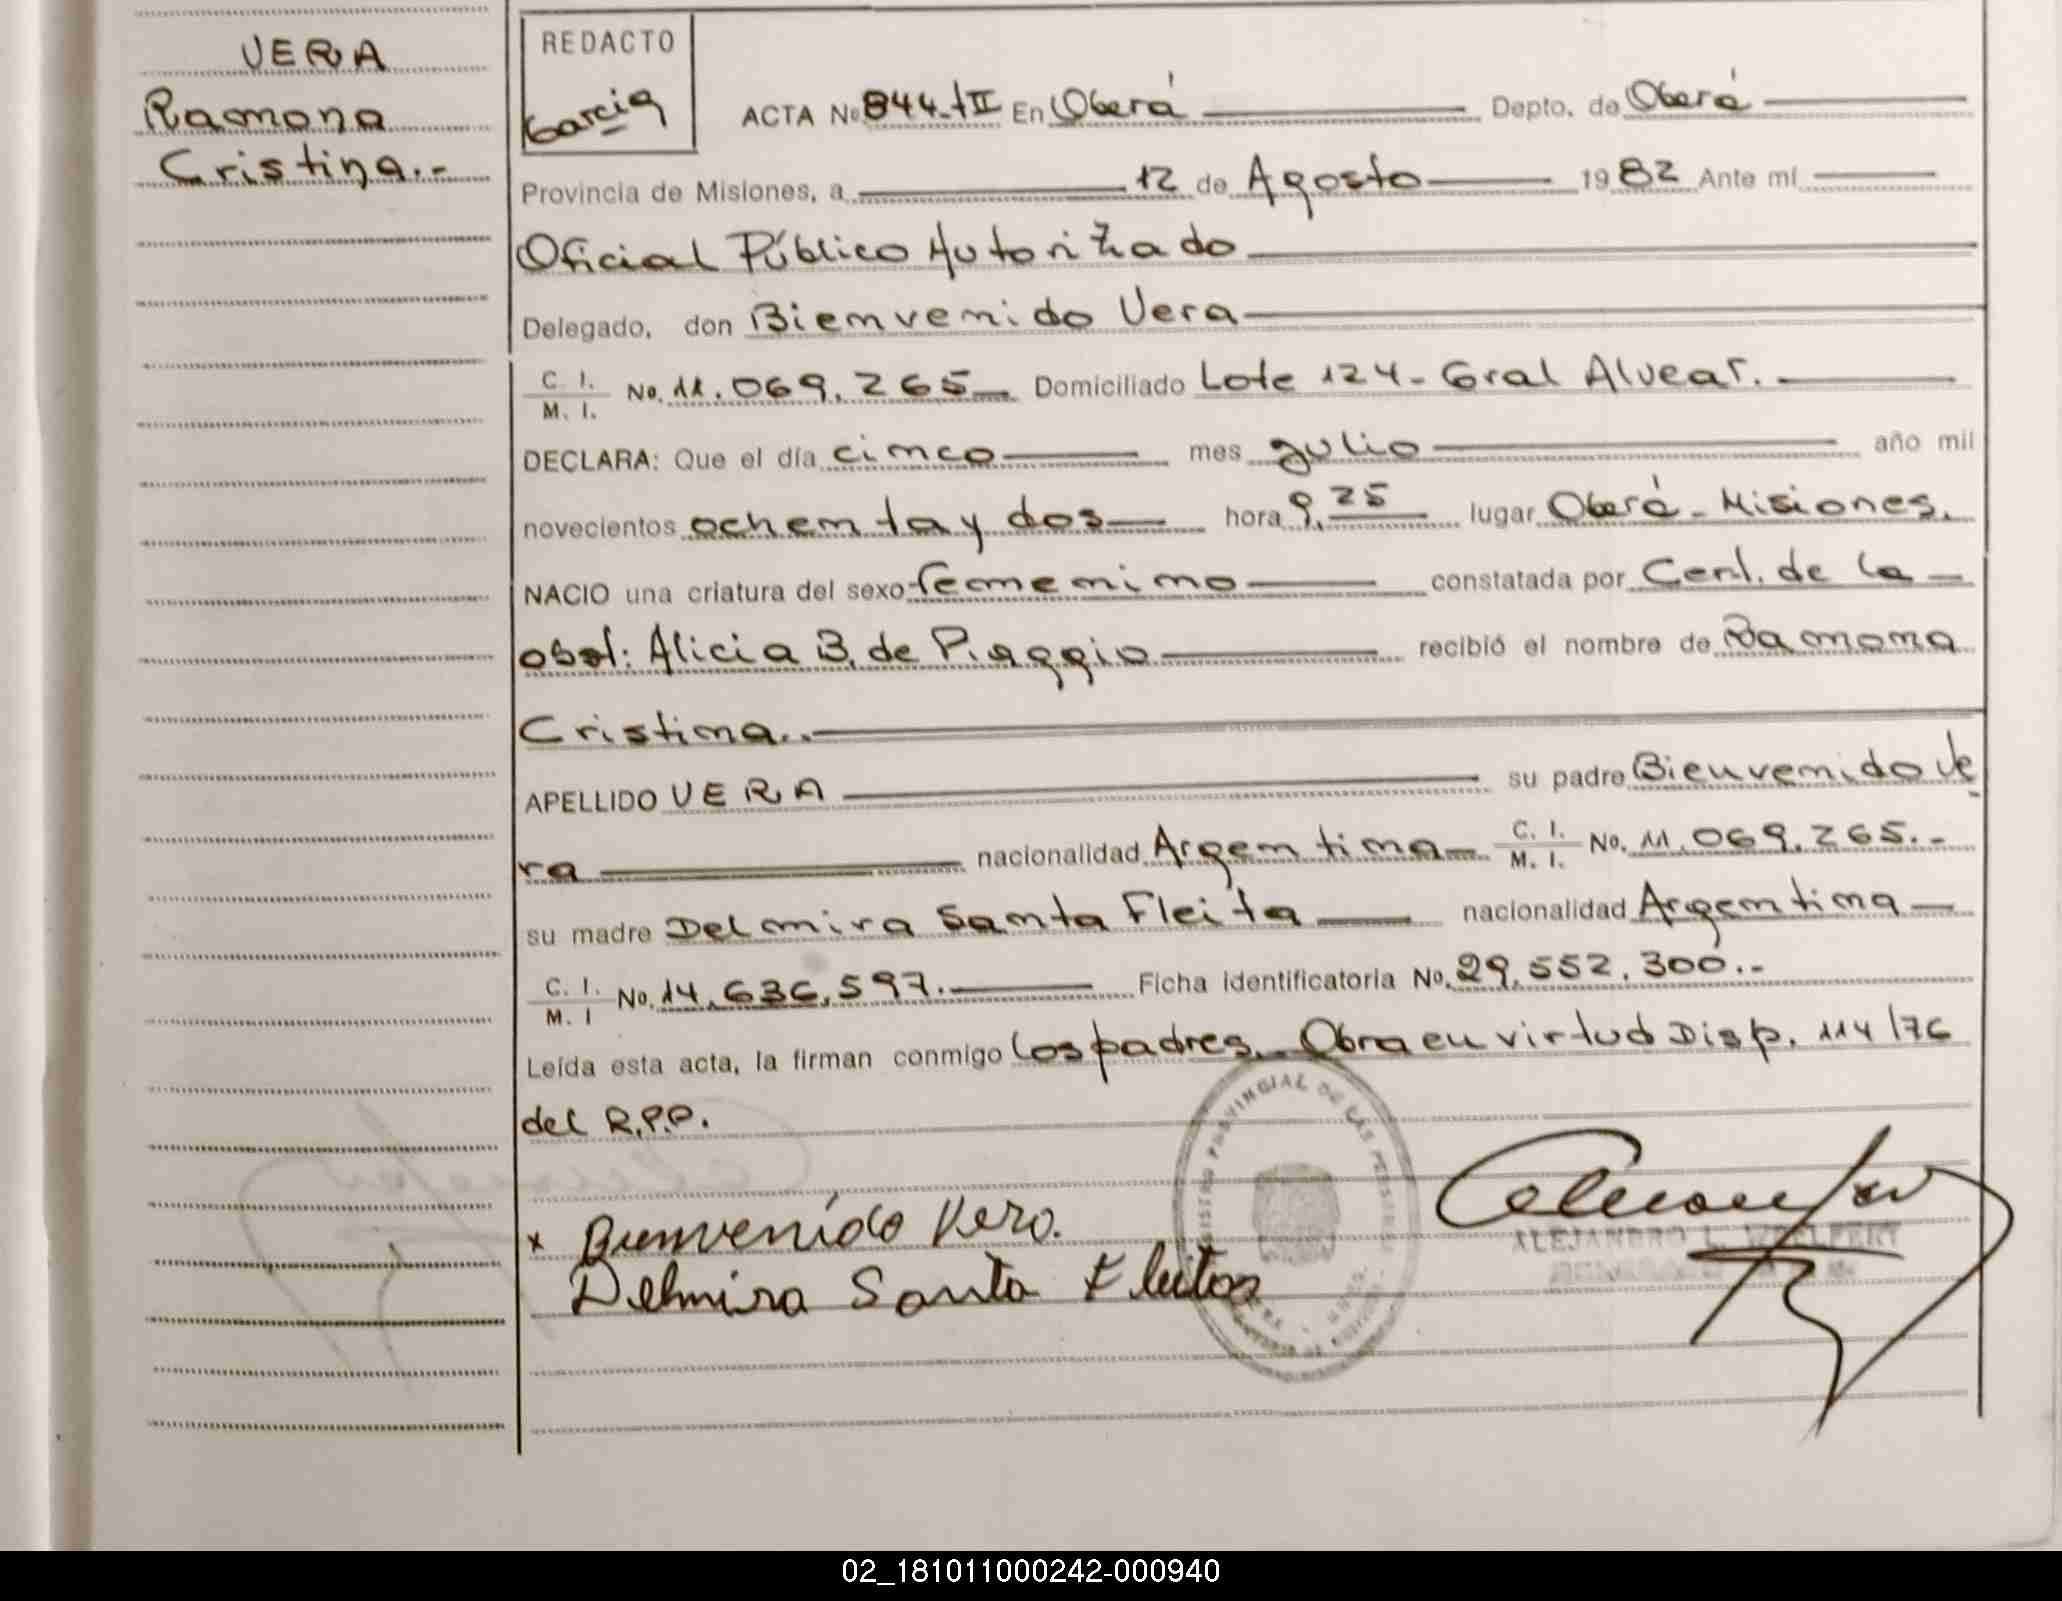 VERA
Ramona
Cristina.-
REDACTO
Garcia
ACTA No 844-tII En Oberá Depto. de Oberá
Provincia de Misiones, a 12 de Agosto 1982 Ante mí
Oficial Público Autorizado
Delegado, don Bienvenido Vera
C. I. / M. I. No. 11.069.265 Domiciliado Lote 124- Gral Alvear.
DECLARA: Que el día cinco mes julio año mil
novecientos ochenta y dos hora 9,25 lugar Oberá - Misiones.
NACIO una criatura del sexo femenino constatada por Cert. de la
obst: Alicia B. de Piaggio recibió el nombre de Ramona
Cristina..
APELLIDO VERA su padre Bienvenido Ve
ra nacionalidad Argentina C. I. / M. I. No. 11.069.265.-
su madre Delmira Santa Fleita nacionalidad Argentina
C. I. / M. I No. 14.636.597. Ficha identificatoria No. 29.552.300.-
Leída esta acta, la firman conmigo los padres. Obra en virtud Disp. 114/76
del R.P.P.
REGISTRO PROVINCIAL DE LAS PERSONAS
x Bienvenido Vera.
Delmira Santa Fleitas
ALEJANDRO L. WOELFERT
02_181011000242-000940